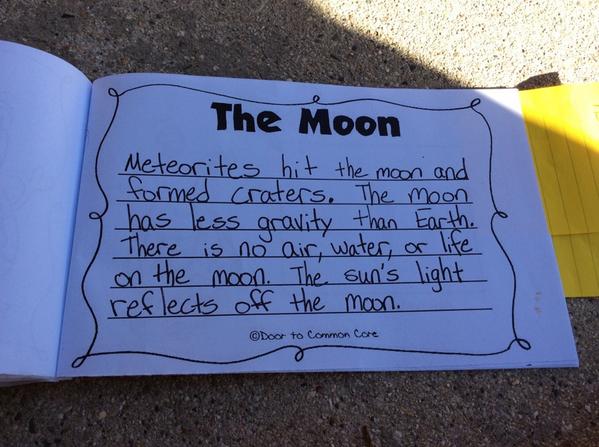 The Moon
Meteorites hit the moon and
formed craters. The moon
has less gravity than Earth.
There is no air, water, or life
on the moon. The sun's light
reflects off the moon.
©Door to Common Core